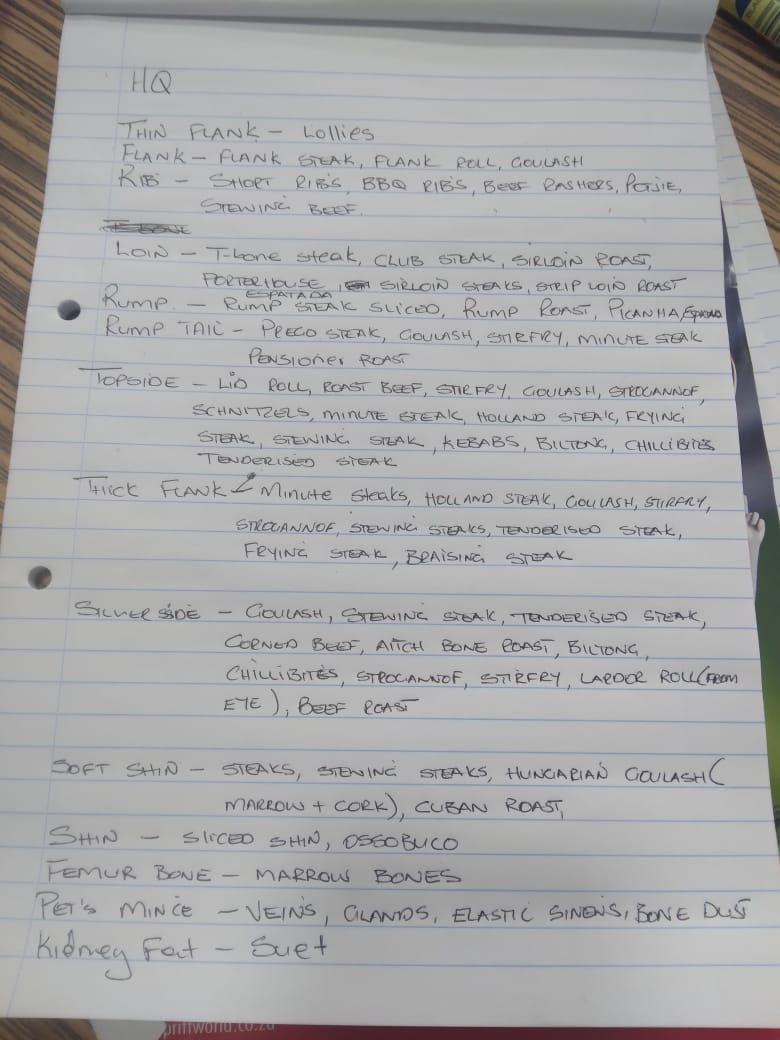 HQ
THIN FLANK - Lollies
FLANK - FLANK STEAK, FLANK ROLL, GOULASH
RIB - SHORT RIB'S, BBQ RIB'S, BEEF RASHERS, POTJIE,
STEWING BEEF.
LOIN - T-bone steak, CLUB STEAK, SIRLOIN ROAST,
PORTERHOUSE, SIRLOIN STEAKS, STRIP LOIN ROAST
ESPATADA
RUMP - RUMP STEAK SLICED, RUMP ROAST, PICANHA/Espatada
RUMP TAIL - PREGO STEAK, GOULASH, STIRFRY, MINUTE STEAK
PENSIONER ROAST
TOPSIDE - LID ROLL, ROAST BEEF, STIRFRY, GOULASH, STROGANNOF,
SCHNITZELS, MINUTE STEAK, HOLLAND STEAK, FRYING
STEAK, STEWING STEAK, KEBABS, BILTONG, CHILLIBITES
TENDERISED STEAK
THICK FLANK - Minute Steaks, HOLLAND STEAK, GOULASH, STIRFRY,
STROGANNOF, STEWING STEAKS, TENDERISED STEAK,
FRYING STEAK, BRAISING STEAK
SILVERSIDE - GOULASH, STEWING STEAK, TENDERISED STEAK,
CORNED BEEF, AITCH BONE ROAST, BILTONG,
CHILLIBITES, STROGANNOF, STIRFRY, LARDER ROLL (FROM
EYE), BEEF ROAST
SOFT SHIN - STEAKS, STEWING STEAKS, HUNGARIAN GOULASH (
MARROW + CORK), CUBAN ROAST,
SHIN - SLICED SHIN, OSSOBUCO
FEMUR BONE - MARROW BONES
PET'S MINCE - VEINS, GLANDS, ELASTIC SINEWS, BONE DUST
Kidney Fat - Suet
priffworld.co.za